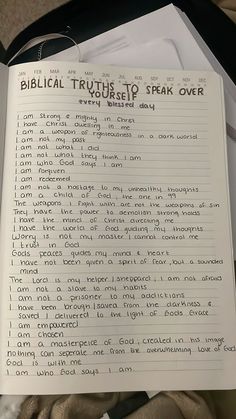 JAN FEB MAR APR MAY JUN JUL AUG SEP OCT NOV DEC
BIBLICAL TRUTHS TO SPEAK OVER
YOURSELF
every blessed day
I am strong & mighty in Christ
I have Christ dwelling in me
I am a weapon of righteousness in a dark world
I am not my past
I am not what I did
I am not what they think I am
I am who God says I am
I am forgiven
I am redeemed
I am not a hostage to my unhealthy thoughts
I am a child of God, the one in 99
The weapons I fight with are not the weapons of sin
They have the power to demolish strong holds
I have the mind of Christ directing me
I have the world of God guiding my thoughts
Worry is not my master I cannot control me
I trust in God
Gods peace guides my mind & heart
I have not been given a spirit of fear, but a sounded
mind
The Lord is my helper / sheppard, I am not afraid
I am not a slave to my habits
I am not a prisoner to my addictions
I have been brought / saved from the darkness &
saved / delivered to the light of Gods Grace
I am empowered
I am chosen
I am a masterpeice of God, created in his image
nothing can seperate me from the overwhelming Love of God
God is with me
I am who God says I am